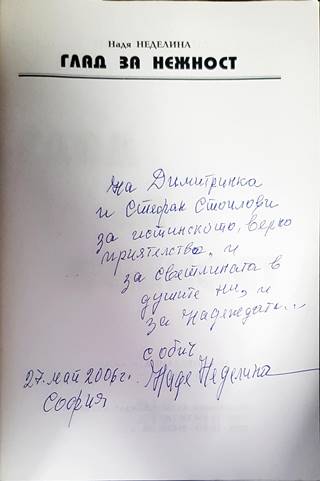 Надя НЕДЕЛИНА
ГЛАД ЗА НЕЖНОСТ
На Димитринка
и Стефан Стоилови
за истинското, верно
приятелство, и
за светлината в
душите ни, и
за надеждата...
с обич
27. май 2006 г. Надя Неделина
София